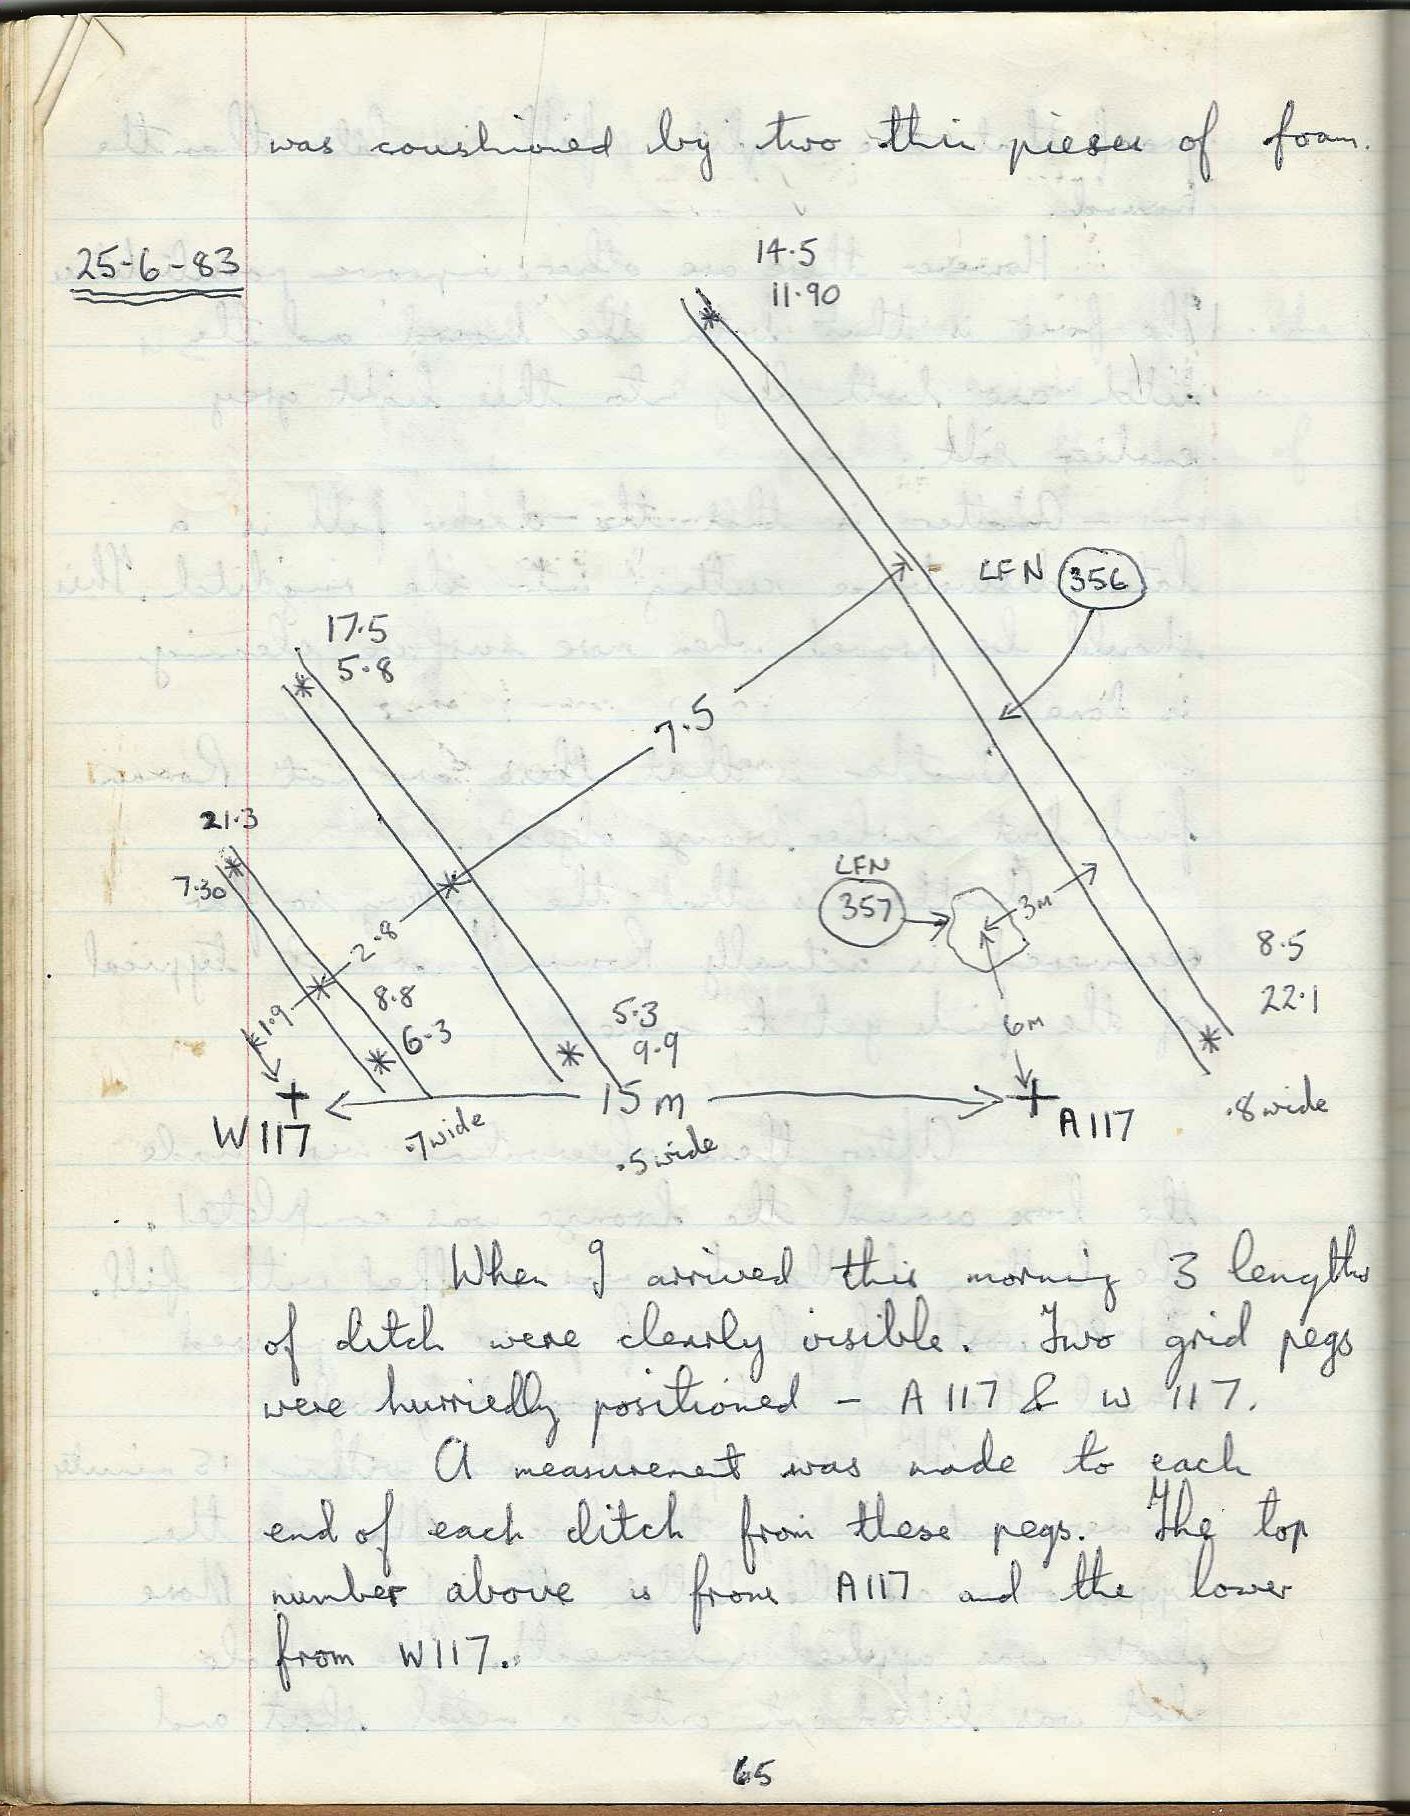 was coushioned by two thin pieses of foam.
25-6-83
14.5
11.90
LFN 356
17.5
5.8
7.5
21.3
7.30
LFN
357
3m
2.8
8.5
22.1
8.8
6.3
1.9
5.3
9.9
6m
W117
15m
A117
.7wide
.5wide
.8wide
When I arrived this morning 3 lengths
of ditch were clearly visible. Two grid pegs
were hurriedly positioned - A117 & W 117.
A measurement was made to each
end of each ditch from these pegs. The top
number above is from A117 and the lower
from W117.
65